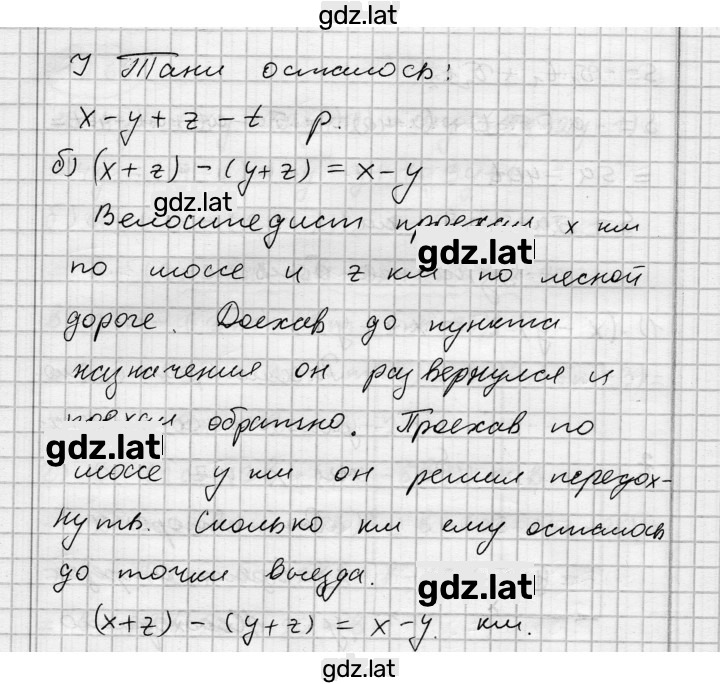 gdz.lat
У Тани осталось:
x - y + z - t р.
б) (x + z) - (y + z) = x - y
gdz.lat
Велосипедист проехал x км
gdz.lat
по шоссе и z км по лесной
дороге. Доехав до пункта
назначения он развернулся и
поехал обратно. Проехав по
gdz.lat
шоссе y км он решил передох-
нуть. Сколько км ему осталось
до точки выезда.
gdz.lat
(x+z) - (y+z) = x-y. км.
gdz.lat